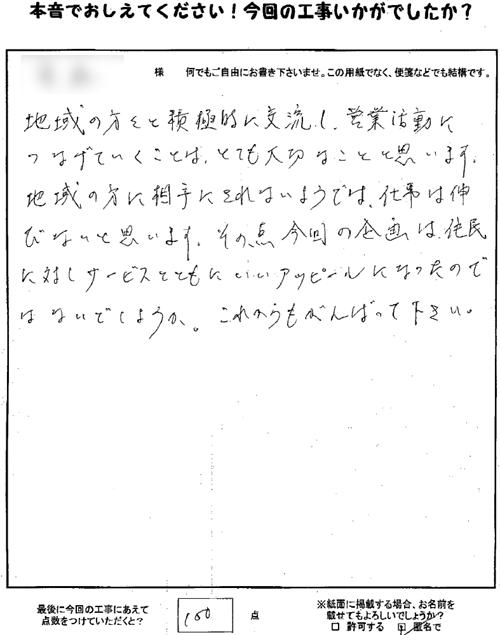 本音でおしえてください！今回の工事いかがでしたか？
様 何でもご自由にお書き下さいませ。この用紙でなく、便箋などでも結構です。
地域の方々と積極的に交流し、営業活動に
つなげていくことは、とても大切なことと思います。
地域の方に相手にされないようでは、仕事は伸
びないと思います。その点今回の企画は、住民
に対しサービスとともにいいアッピールになったので
はないでしょうか。これからもがんばって下さい。
最後に今回の工事にあえて
点数をつけていただくと？
100 点
※紙面に掲載する場合、お名前を
載せてもよろしいでしょうか？
□ 許可する □ 匿名で